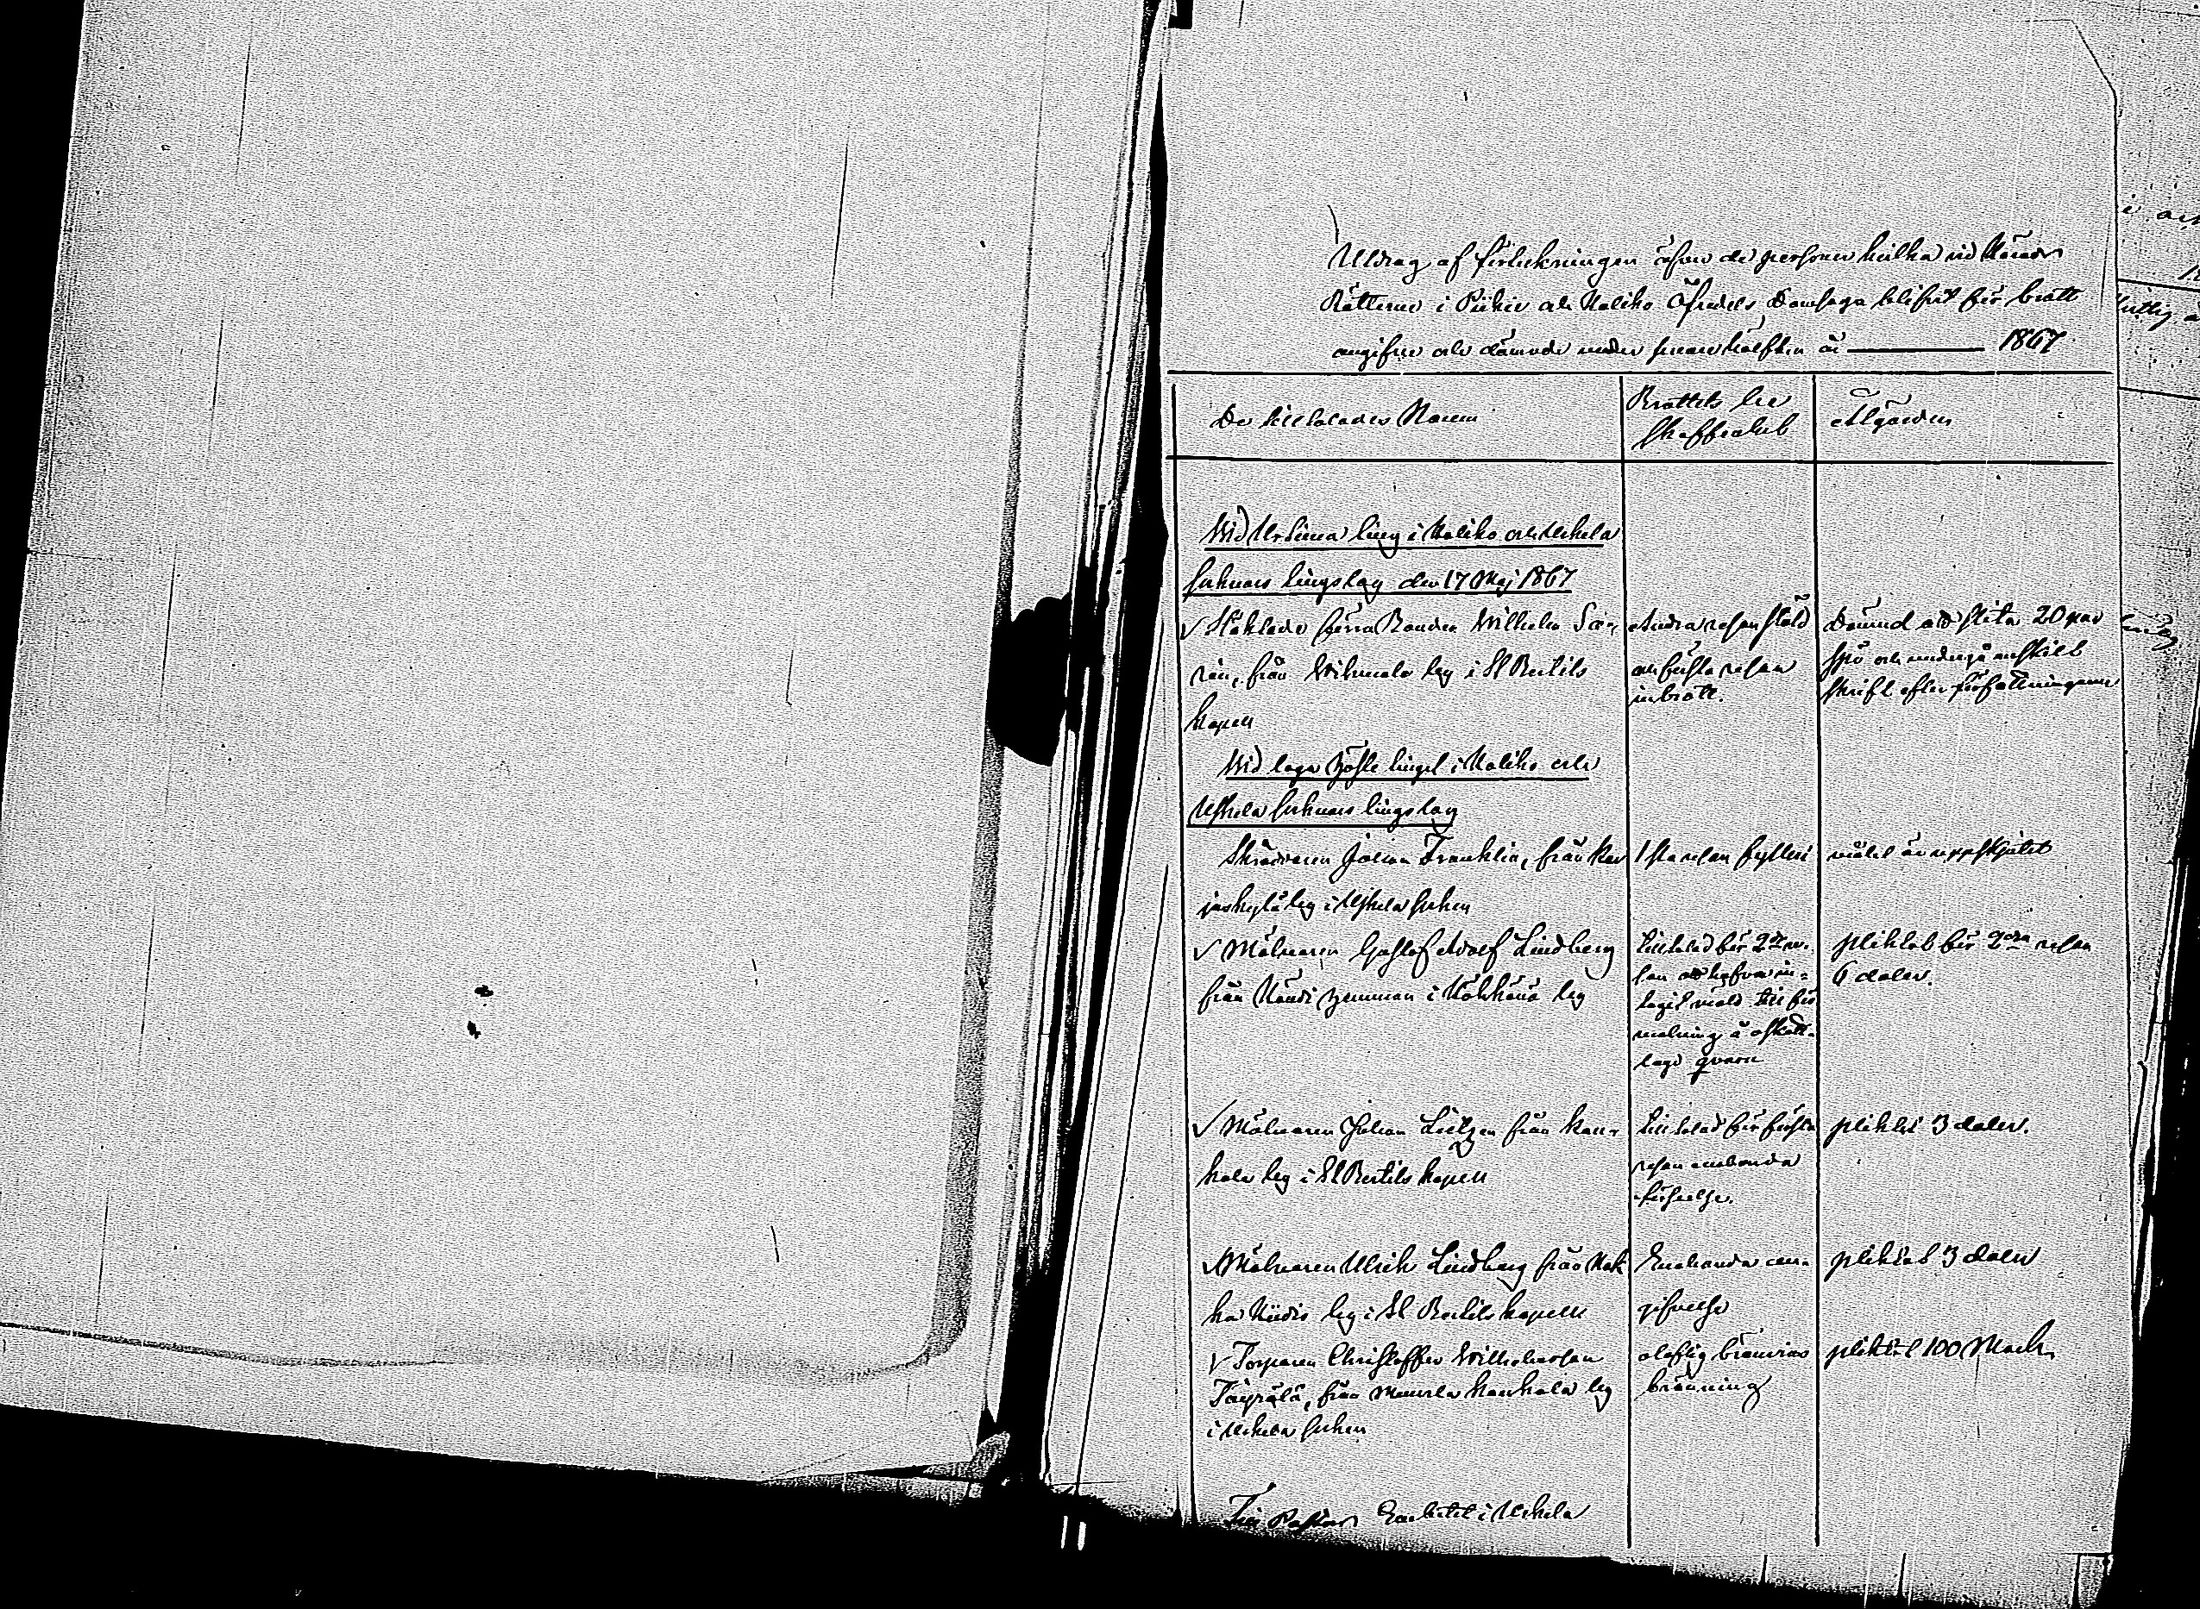 Utdrag af förteckningen öfver de personer hvilka vid Härads
Rätterne i Pikie och Haliko Öfredels Domsaga blifvit för brott
angifne och dömde under senare hälften år 1867
De tilltalades Namn
Brottets be
skaffenhet
Åtgärden
Wid Urtima ting i Haliko och Uskela
socknars tingslag den 17 Maj 1867
Häktade förra Bonden Wilhelm
från by i St Bertils
kapell
Andra resan stöld
och första resan
inbrott.
Dömd att slita 20 par
spö och undergå enskilt
skrift efter författningarne
Wid laga Höste tinget i Haliko och
Uskela socknars tingslag
Skräddaren Johan Franklin, från Kar
jaskylä by i Uskela socken
1sta resan fylleri
målet är uppskjutet
Mölnaren Gustaf Adolf Lindberg
från hemman i by
tilltalad för 2dra re-
san att hafva in-
tagit mäld till för
malning å oskatt-
lagd qvarn
pliktat för 2dra resan
6 daler.
Mölnaren Johan från Kau-
kola by i St Bertils kapell
tilltalad för första
resan enahanda
förseelse.
pliktat 3 daler.
Mölnaren Ulrik Lindberg från
by i St Bertils kapell
Enahanda an-
gifvelse
pliktat 3 daler
Torparen Christoffer Wilhelmsson
från kaukola by
i Uskela socken
olaglig bränvins
bränning
pliktat 100 Mark
Till Pastors Embetet i Uskela